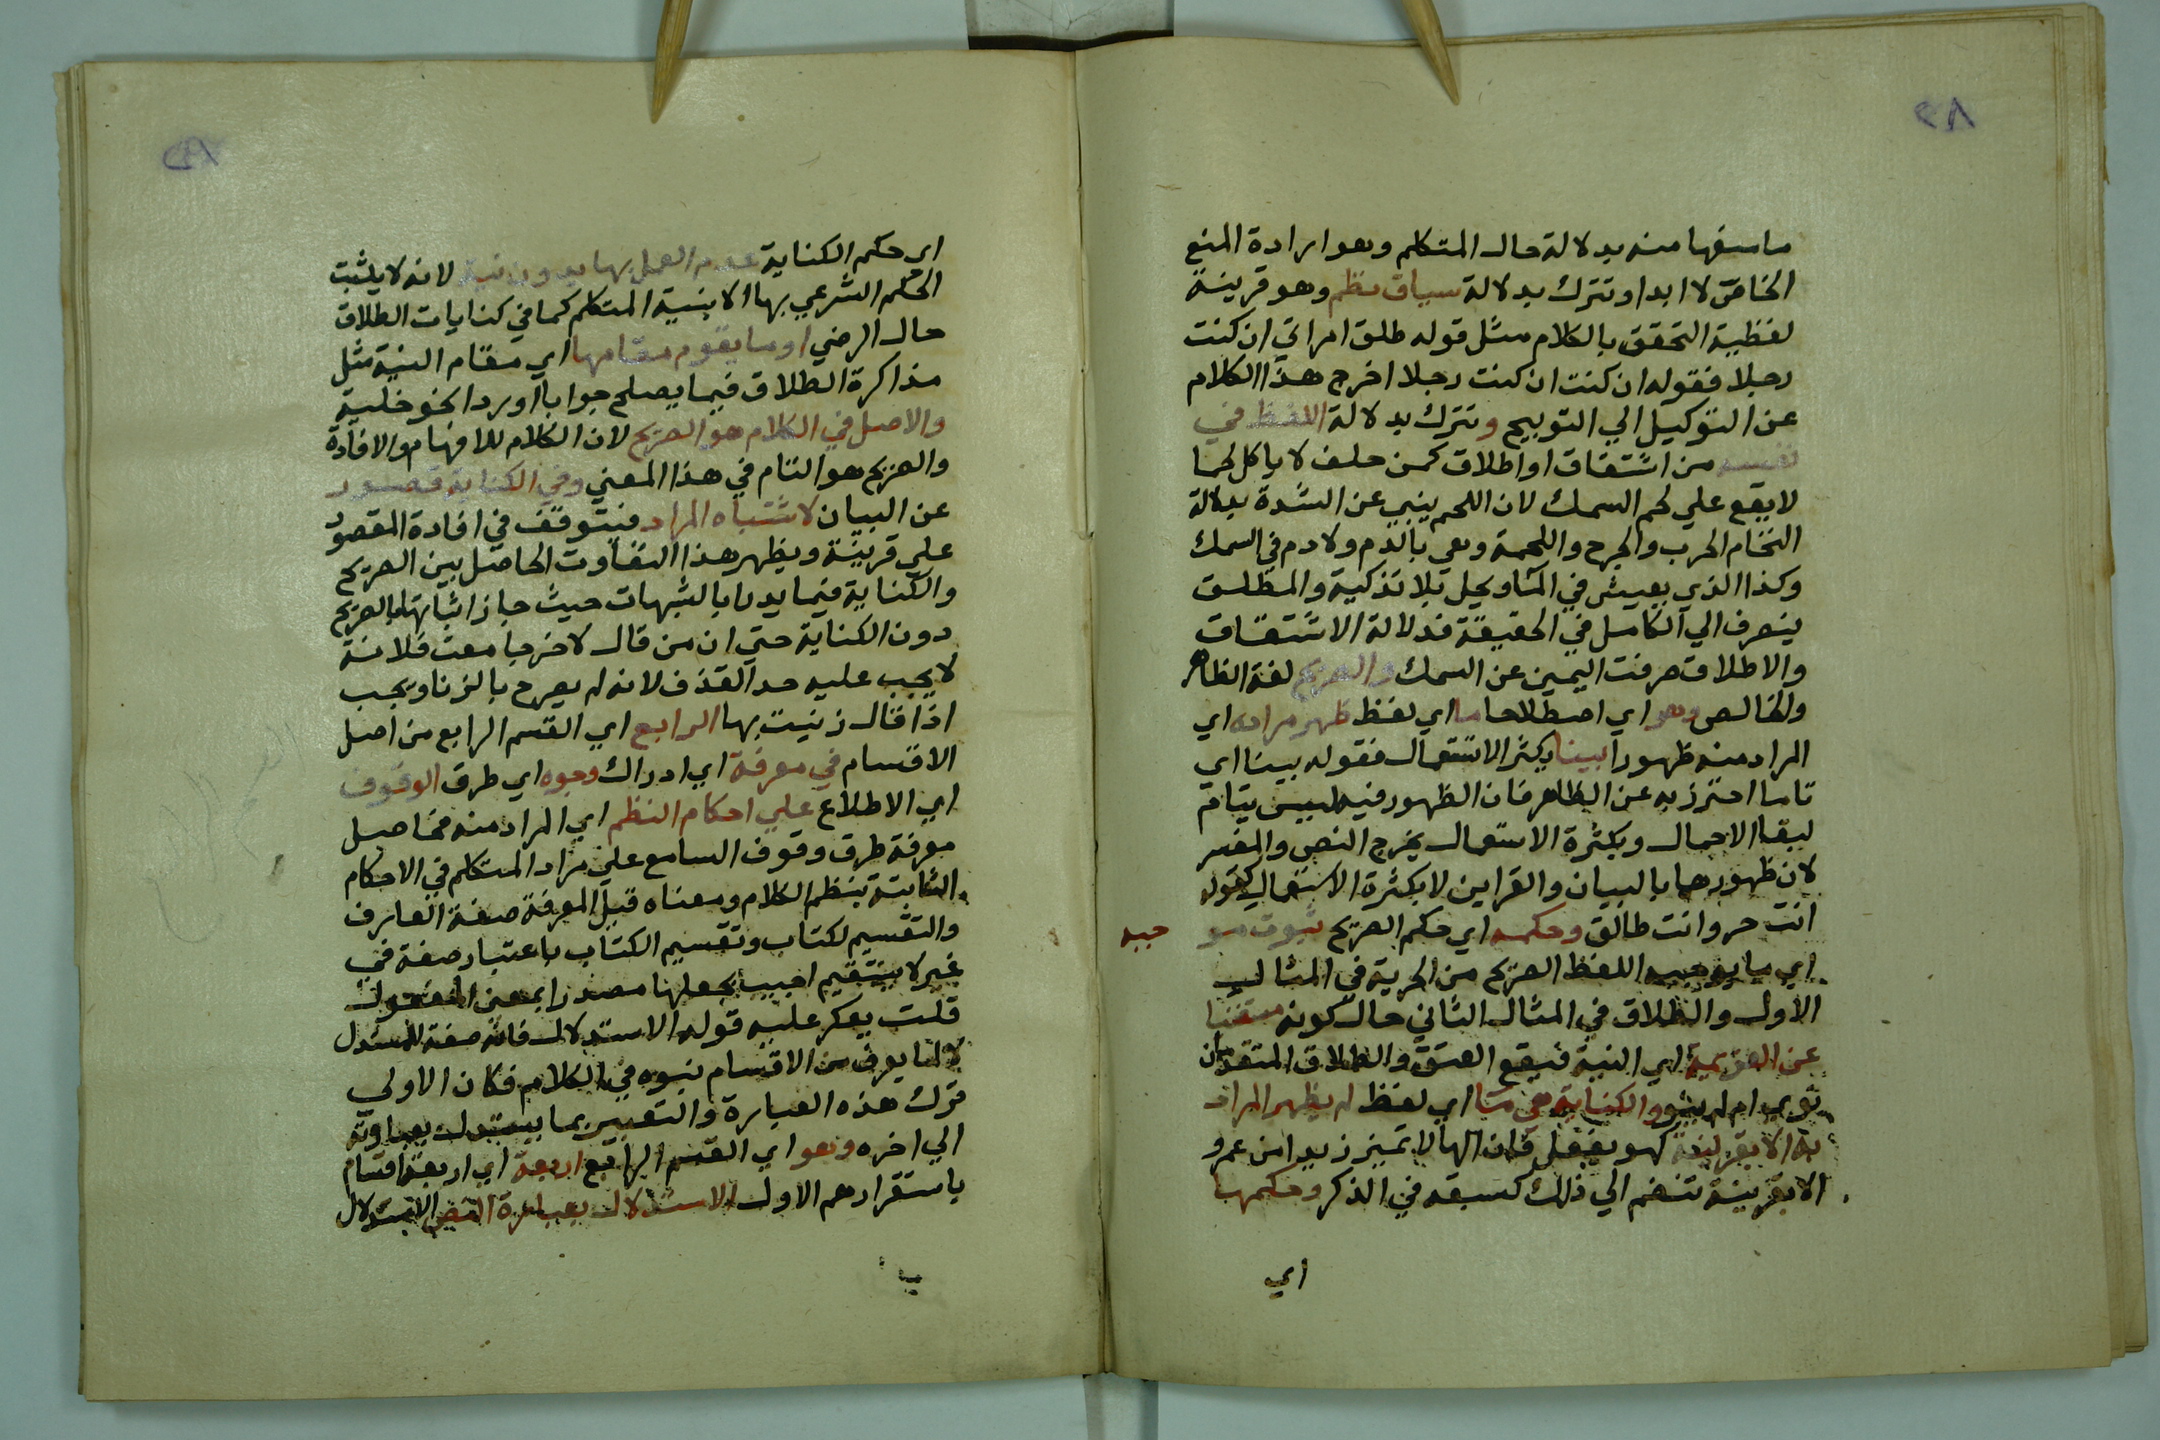 ٢٨
ما سفها منه بدلالة حال المتكلم وهو ارادة المنع
الخاص لا ابدا وتترك بدلالة سياق نظم وهو قرينة
لفظية التحقق بالكلام مثل قوله طلق امراتي ان كنت
رجلا فقوله ان كنت ان كنت رجلا اخرج هذا الكلام
عن التوكيل الي التوبيخ وتترك بدلالة اللفظ في
نفسه من اشتقاق او اطلاق كمن حلف لا ياكل لحما
لا يقع علي لحم السمك لان اللحم ينبي عن الشدة بدلالة
التخام الحرب والجرح واللحمة وهي بالدم ولا دم في السمك
وكذا الذي يعيش في الماء ويحل بلا تذكية والمطلق
ينصرف الي الكامل في الحقيقة فدلالة الاشتقاق
والاطلاق صرفت اليمين عن السمك والصريح لغة الظاهر
والخالص وهو اي اصطلاحا ما اي لفظ ظهر مراده اي
المراد منه ظهورا بينا بكثر الاستعمال فقوله بينا اي
تاما احترز به عن الظاهر فان الظهور فيه ليس بتام
لبقا الاحمال وبكثرة الاستعمال يخرج النص والمفسر
لان ظهورهما بالبيان والقراين لا بكثرة الاستعمال كقوله
انت حر وانت طالق وحكمه اي حكم الصريح ثبوت مو جبه
اي ما يوجبه اللفظ الصريح من الحرية في المثال
الاول والطلاق في المثال الثاني حال كونه مستغنيا
عن العزيمة اي النية فيقع العتق والطلاق المتقدمان
نوي ام لم ينو والكناية هي ما اي لفظ لم يظهر المراد
به الا بقرينة كهو يفعل فان الها لا تميز زيد امن عمرو
الا بقرينة تنضم الي ذلك كسبقه في الذكر وحكمها
اي
اي حكم الكناية عدم العمل بها بدون نية لانه لا يثبت
الحكم الشرعي بها الا بنية المتكلم كما في كنايات الطلاق
حال الرضي او ما يقوم مقامها اي مقام النية مثل
مذاكرة الطلاق فيما يصلح جوابا او ردا نحو خلية
والاصل في الكلام هو الصريح لان الكلام للافهام والافادة
والصريح هو التام في هذا المعني وفي الكناية قصور
عن البيان لاشتباه المراد فيتوقف في افادة المقصود
علي قرينة ويظهر هذا التفاوت الحاصل بين الصريح
والكناية فيما يدرا بالشبهات حيث جاز اثباتها بالصريح
دون الكناية حتي ان من قال لاخر جامعت فلانة
لا يجب عليه حد القذف لانه لم يصرح بالزنا ويجب
اذا قال زنيت بها الرابع اي القسم الرابع من اصل
الاقسام في معرفة اي ادراك وجوه اي طرق الوقوف
اي الاطلاع علي احكام النظم اي المراد منه فحاصل
معرفة طرق وقوف السامع علي مراد المتكلم في الاحكام
الثابتة بنظم الكلام ومعناه قيل المعرفة صفة العارف
والتقسيم لكتاب وتقسيم الكتاب باعتبار صفة في
غير لا يستقيم اجيب بجعلها مصدرا بمعني المفعول
قلت يعكر عليه قوله الاستدلال فانه صفة للمستدل
من الاقسام نبوه في الكلام فكان الاولي
ترك هذه العبارة والتعبير بما يستدل بعبارته
الي اخره وهو اي القسم الرابع اربعة اي اربعة اقسام
باستقرارهم الاول الاستدلال بعبارة النص الاستدلال